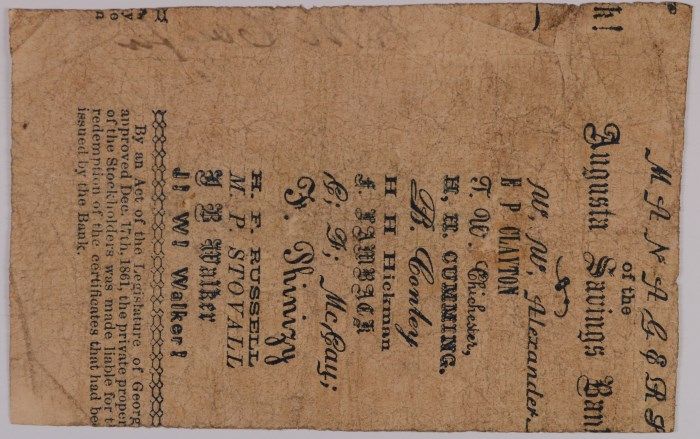 MANAGERS
of the
Augusta Savings Bank
W, W, Alexander
E P CLAYTON
T. W. Chichester,
H, H. CUMMING.
B. Conley
H H Hickman
C; F; McCay;
F. Phinizy
H. F. RUSSELL
M. P. STOVALL
J B Walker
J: W: Walker:
By an Act of the Legislature of Georg
approved Dec. 17th, 1861, the private proper
of the Stockholders was made liable for t
redemption of the certificates that had be
issued by the Bank.